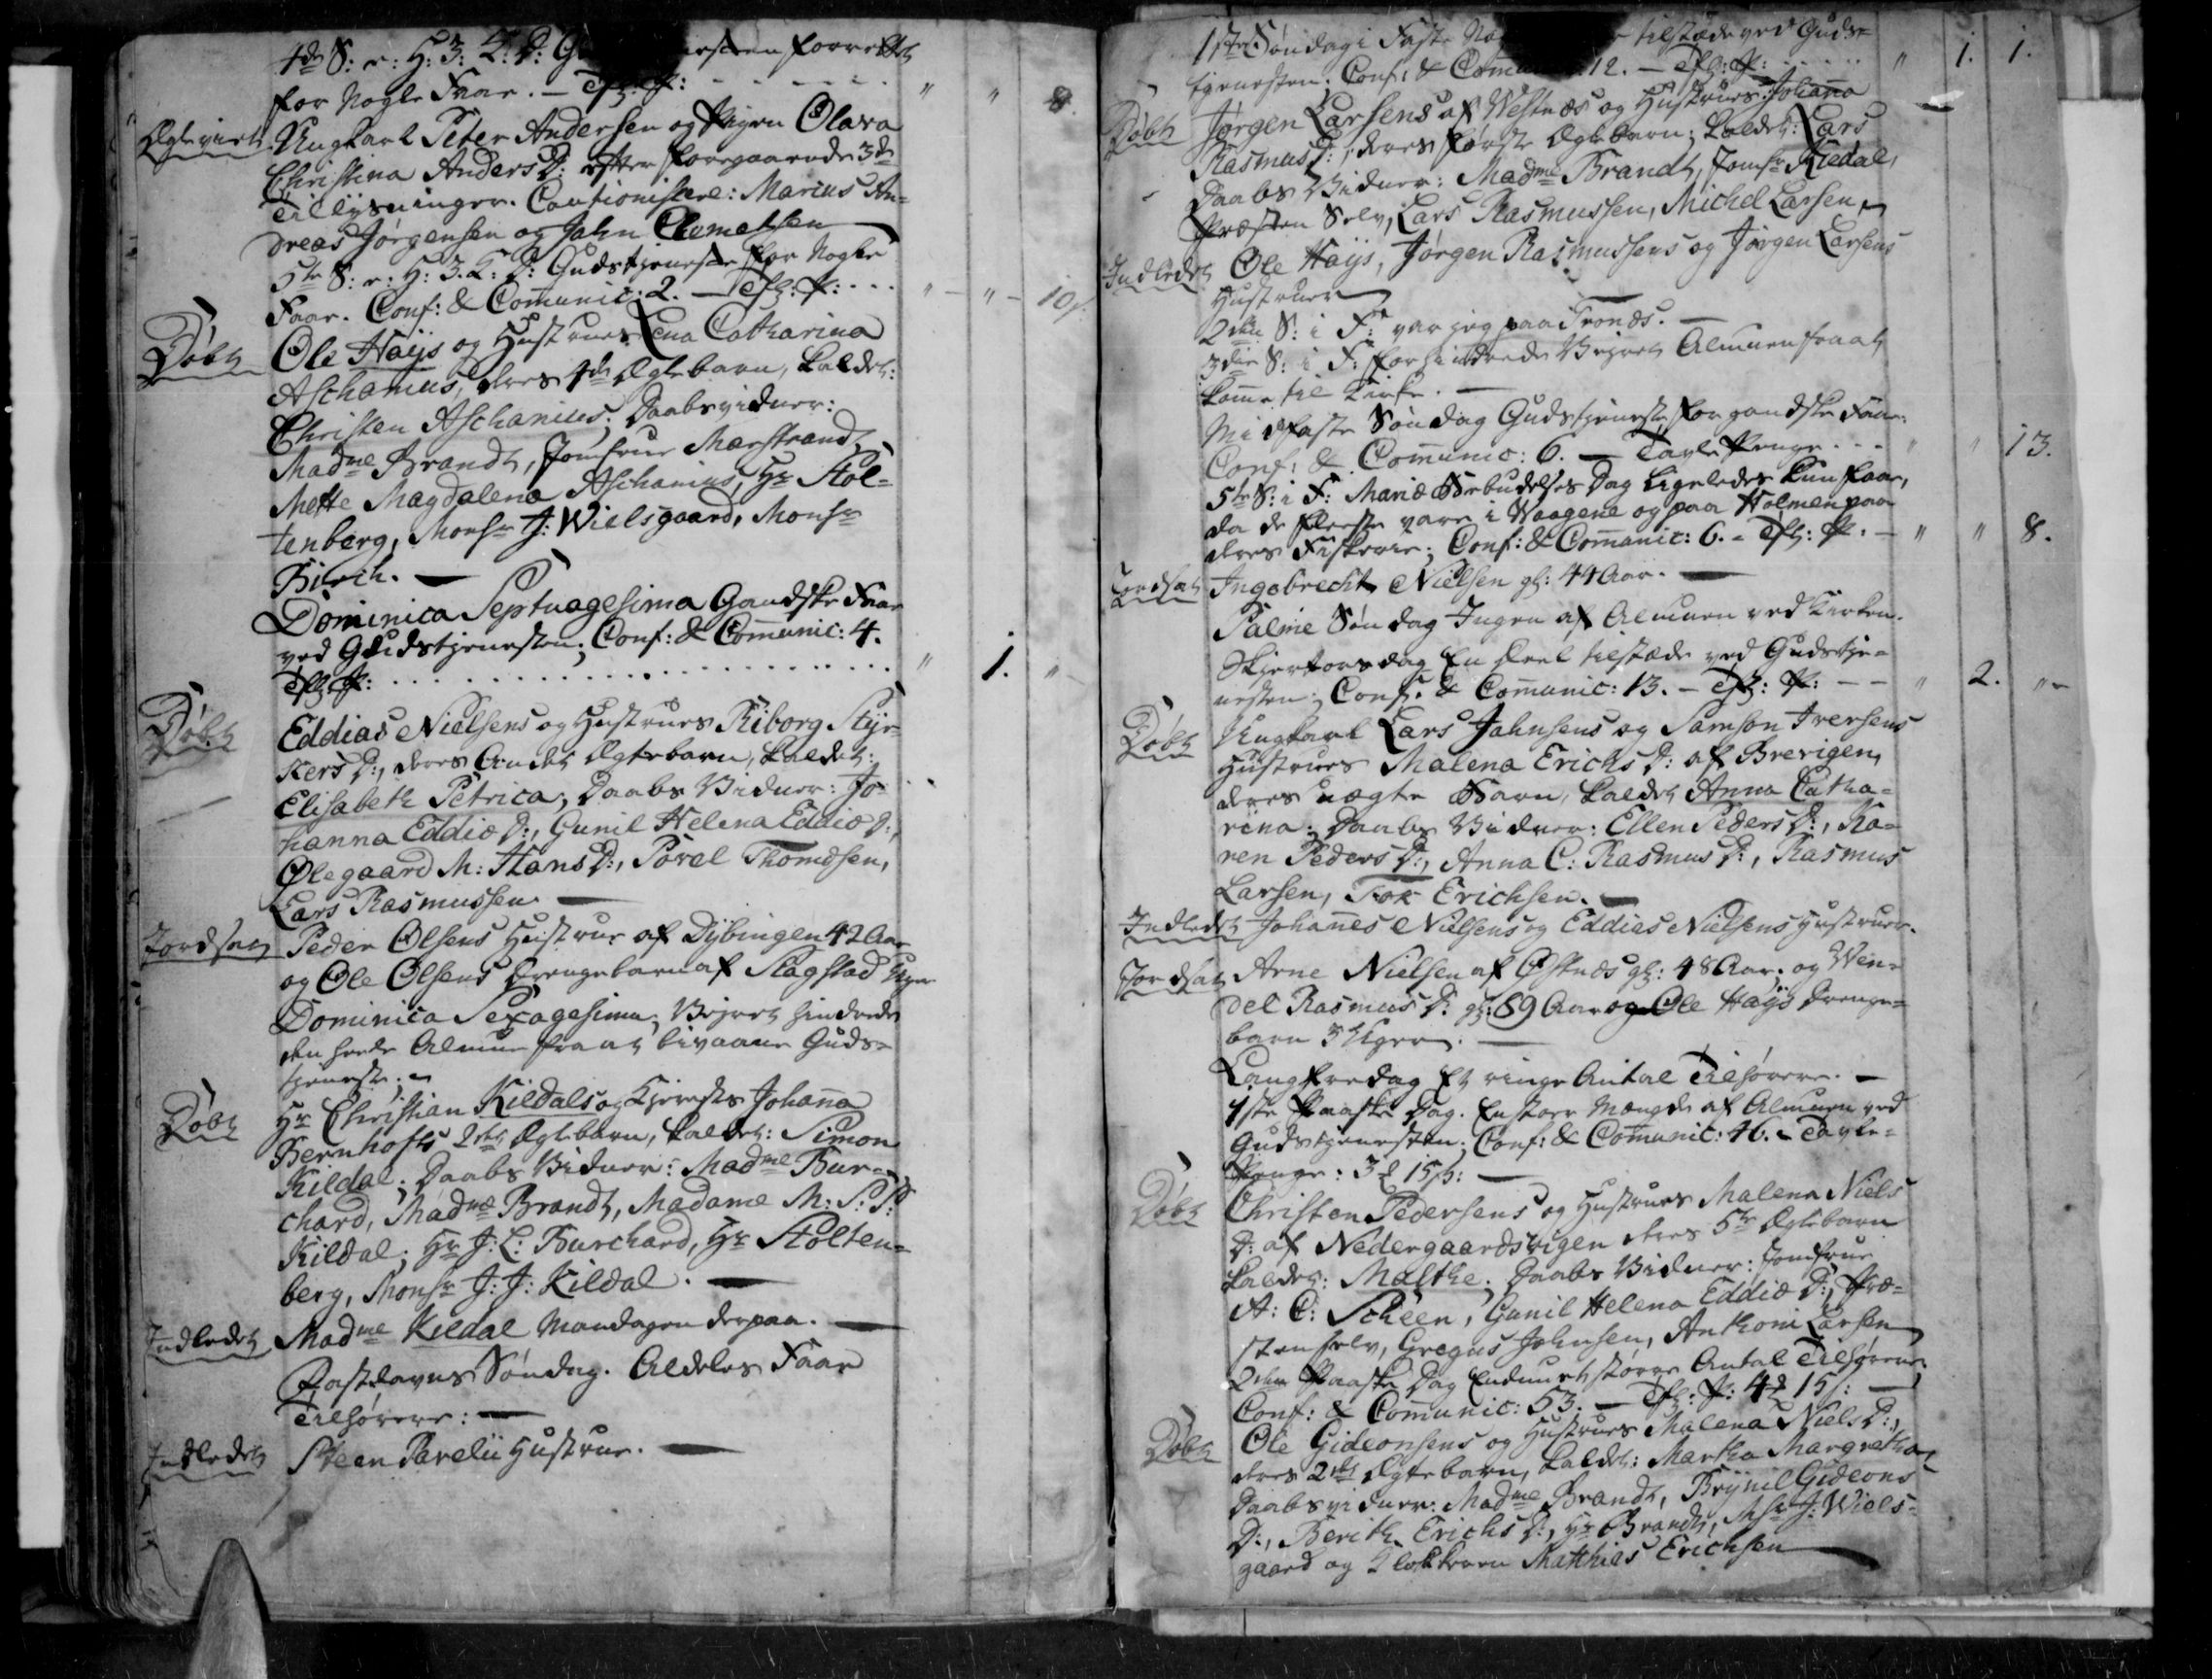 4de S: e: H: 3. K: D: Gudstienesten forrettet
for Nogle Faae. - Tfl: P: - - - - - " " 8.
Ægteviet Ungkarl Peter Andersen og Pigen Olava
Christina Anders D: efter foregaaende 3de
Tillysninger. Cautionistere: Marius An-
dreas Jørgensen og John Clemetsen
5te S: e: H: 3. K: D: Gudstienesten for Nogle
Faae. Conf: & Com̄unic: 2. - Tfl: P: - - - " - " - 10.
Døbt Ole Haÿs og Hustrues Lena Catharina
Aschanius, deres 4de Ægtebarn, kaldet:
Christen Aschanius; Daabsvidner:
Madme Brandt, Jomfrue Marstrand,
Mette Magdalena Aschanius, Hr Stol-
tenberg, Monsr J: Wielsgaard, Monsr
Birch. -
Dominica Septuagesima Gandske Faae
ved Gudstjenesten; Conf: & Com̄unic: 4.
Tfl: P: . . . . . . . . . . " 1. "
Døbt Eddias Nielsens og Hustrues Kiborg Styr-
kers D:, deres Andet Ægtebarn, kaldet:
Elisabeth Petrica; Daabs Vidner: Jo-
hanna Eddiæ D:, Gunil Helena Eddiæ D:,
Olegaard M: Hans D:, Povel Thomesen,
Lars Rasmussen -
Jordsat Peder Olsens Hustrue af Dybingen 42 Aar
og Ole Olsens Drengebarn af Slagstad
Dominica Sexagesima; Vejret hindrede
den heele Almue fra at bivaane Guds-
tjeneste. -
Døbt Hr Christian Kildals og Kjereste Johan̄a
Bernhofts 2det Ægtebarn, kaldet: Simon
Kildal; Daabs Vidner: Madme Bur-
chard, Madme Brandt, Madame M: S: S:
Kildal; Hr J: L: Burchard, Hr Stolten-
berg, Monsr J: J: Kildal. -
Indledet Madme Kildal Mandagen derpaa. -
Fastelavns Søndag. Aldeles Faae
Tilhørere: -
Indledet Steen Parelii Hustrue. -
1ste Søndag i Faste tilstæde ved Guds-
tjenesten; Conf: & 12. - Tfl: P: - - - " 1. 1.
Døbt Jørgen Larsens af Westnæs og Hustrues Johan̄a
Rasmus D:, deres første Ægtebarn; kaldet: Lars
Daabs Vidner: Madme Brandt, Jomfr Kildal,
Præsten Selv, Lars Rasmussen, Michel Larsen, -
Indledet Ole Haÿs, Jørgen Rasmussens og Jørgen Larsens
Hustruer
2den S: i F: var jeg paa Trones. -
3die S: i F: forhindrede Vejret Almuen fra at
kom̄e til Kirke. -
Midfaste Søndag Gudstjeneste for gandske Faae:
Conf: & Com̄unic: 6. - Tavle Penge. - - " " 13.
5te S: i F: Mariæ Bebudelses Dag ligeledes kun faae,
da de fleeste vare i Waagene og paa Holmen paa
deres Fiskerie; Conf: & Com̄unic: 6. - Tfl: P: - " " 8.
Jordsat Ingebrecht Nielsen gl: 44 Aar. -
Palme Søndag Ingen af Almuen ved Kirken.
Skjertorsdag En Deel tilstæde ved Gudstje-
nesten; Conf: & Com̄unic: 13. - Tfl: P: - - " 2. " -
Døbt Ungkarl Lars Jahnsens og Samson Iversens
Hustrues Malena Erichs D: af Brevigen,
deres uægte Barn, kaldet Anna Catha-
rina; Daabs Vidner: Ellen Peders D:, Ka-
ren Peders D:, Anna C: Rasmus D:, Rasmus
Larsen, Fok Erichsen. -
Indledet Johan̄es Nielsens og Eddias Nielsens Hustruer.
Jordsat Arne Nielsen af Østnæs gl: 48 Aar. og Wen-
del Rasmus D: gl: 89 Aar og Ole Haÿs Drenge-
barn 3 Uger. -
Langfredag Et ringe Antal Tilhørere. -
1ste Paaske Dag. En stoer Mængde af Almuen ved
Gudstjenesten; Conf: & Com̄unic: 46. - Tavle-
Penge: 3 15 s: -
Døbt Christen Pedersens og Hustrues Malena Niels
D: af Nedergaardsvigen deres 5te Ægtebarn
kaldet: Malthe; Daabs Vidner: Jomfrue
A: C: Scheen, Gunil Helena Eddiæ D:, Præ-
sten selv, Gregus Johnsen, Anthoni Larsen
2den Paaske Dag Endnu et større Antal Tilhørere;
Conf: & Com̄unic: 53. - Tfl: P: 4 15 s: -
Døbt Ole Gideonsens og Hustrues Malena Niels D:,
deres 2det Ægtebarn, kaldet: Martha Margretha,
Daabsvidner: Madme Brandt, Brynil Gideons
D:, Berith Erichs D:, Hr Brandt, Msr J: Wiels-
gaard og Klokkeren Matthias Erichsen